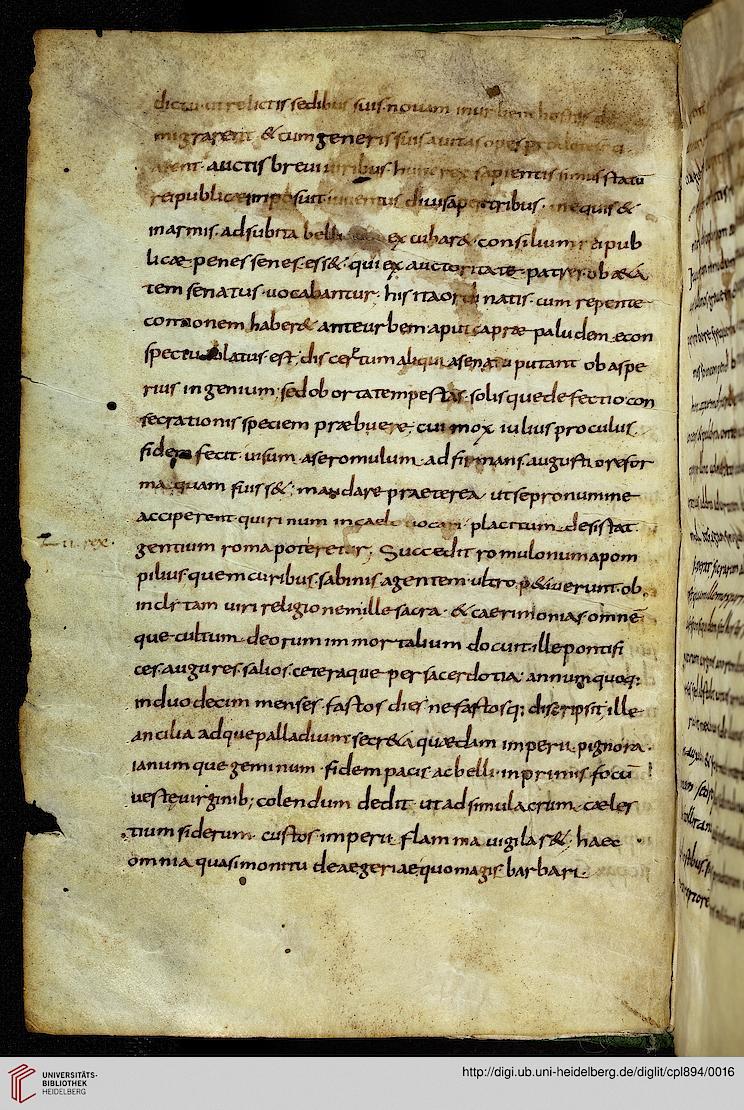 dictu ut relictis sedibus suis novam in urbem hostes de
migrarent & cum generis suis avitas opes pro dote soci
arent. auctis brevi viribus. hunc rex sapientissimus statū
reipublicae imposuit. iuventus divisa per tribus. in equis &
in armis. ad subita belli excubar&. consilium reipub
licae penes senes ess&. qui ex auctoritate patres. ob aeta
tem senatus vocabantur. his ita ordinatis. cum repente
contionem haber& ante urbem aput caprae paludem. e con
spectu ablatus est. discertum aliqui a senatu putant ob aspe
rius ingenium; sed oborta tempestas. solisque defectio con
secrationis speciem praebuere; cui mox iulius proculus
fidem fecit. visum a se romulum. adfirmans. augustiore for
ma. quam fuiss&; mandare praeterea ut se pro numine
acciperent. quirinum in caelo vocari placitum desistat.
gentium roma poteretur; Succedit romulo numa pom
pilius. quem curibus. sabinis agentem ultro. petiverunt. ob
inclitam viri religionem ille sacra. & caerimonias. omnē
que cultum deorum immortalium docuit. ille pontifi
ces. augures. salios. ceteraque per sacerdotia; annum quoq;
in duodecim menses. fastos dies nefastosq; discripsit. ille
ancilia adque palladium. secreta quaedam imperii pignora.
ianumque geminum. fidem pacis. ac belli. in primis. focū
veste virginib; colendum dedit ut ad simulacrum. caeles
tium siderum. custos imperii flamma vigilar&; haec
omnia quasi monitu deae egeriae quo magis barbari.
II. rex.
UNIVERSITÄTS-
BIBLIOTHEK
HEIDELBERG
http://digi.ub.uni-heidelberg.de/diglit/cpl894/0016